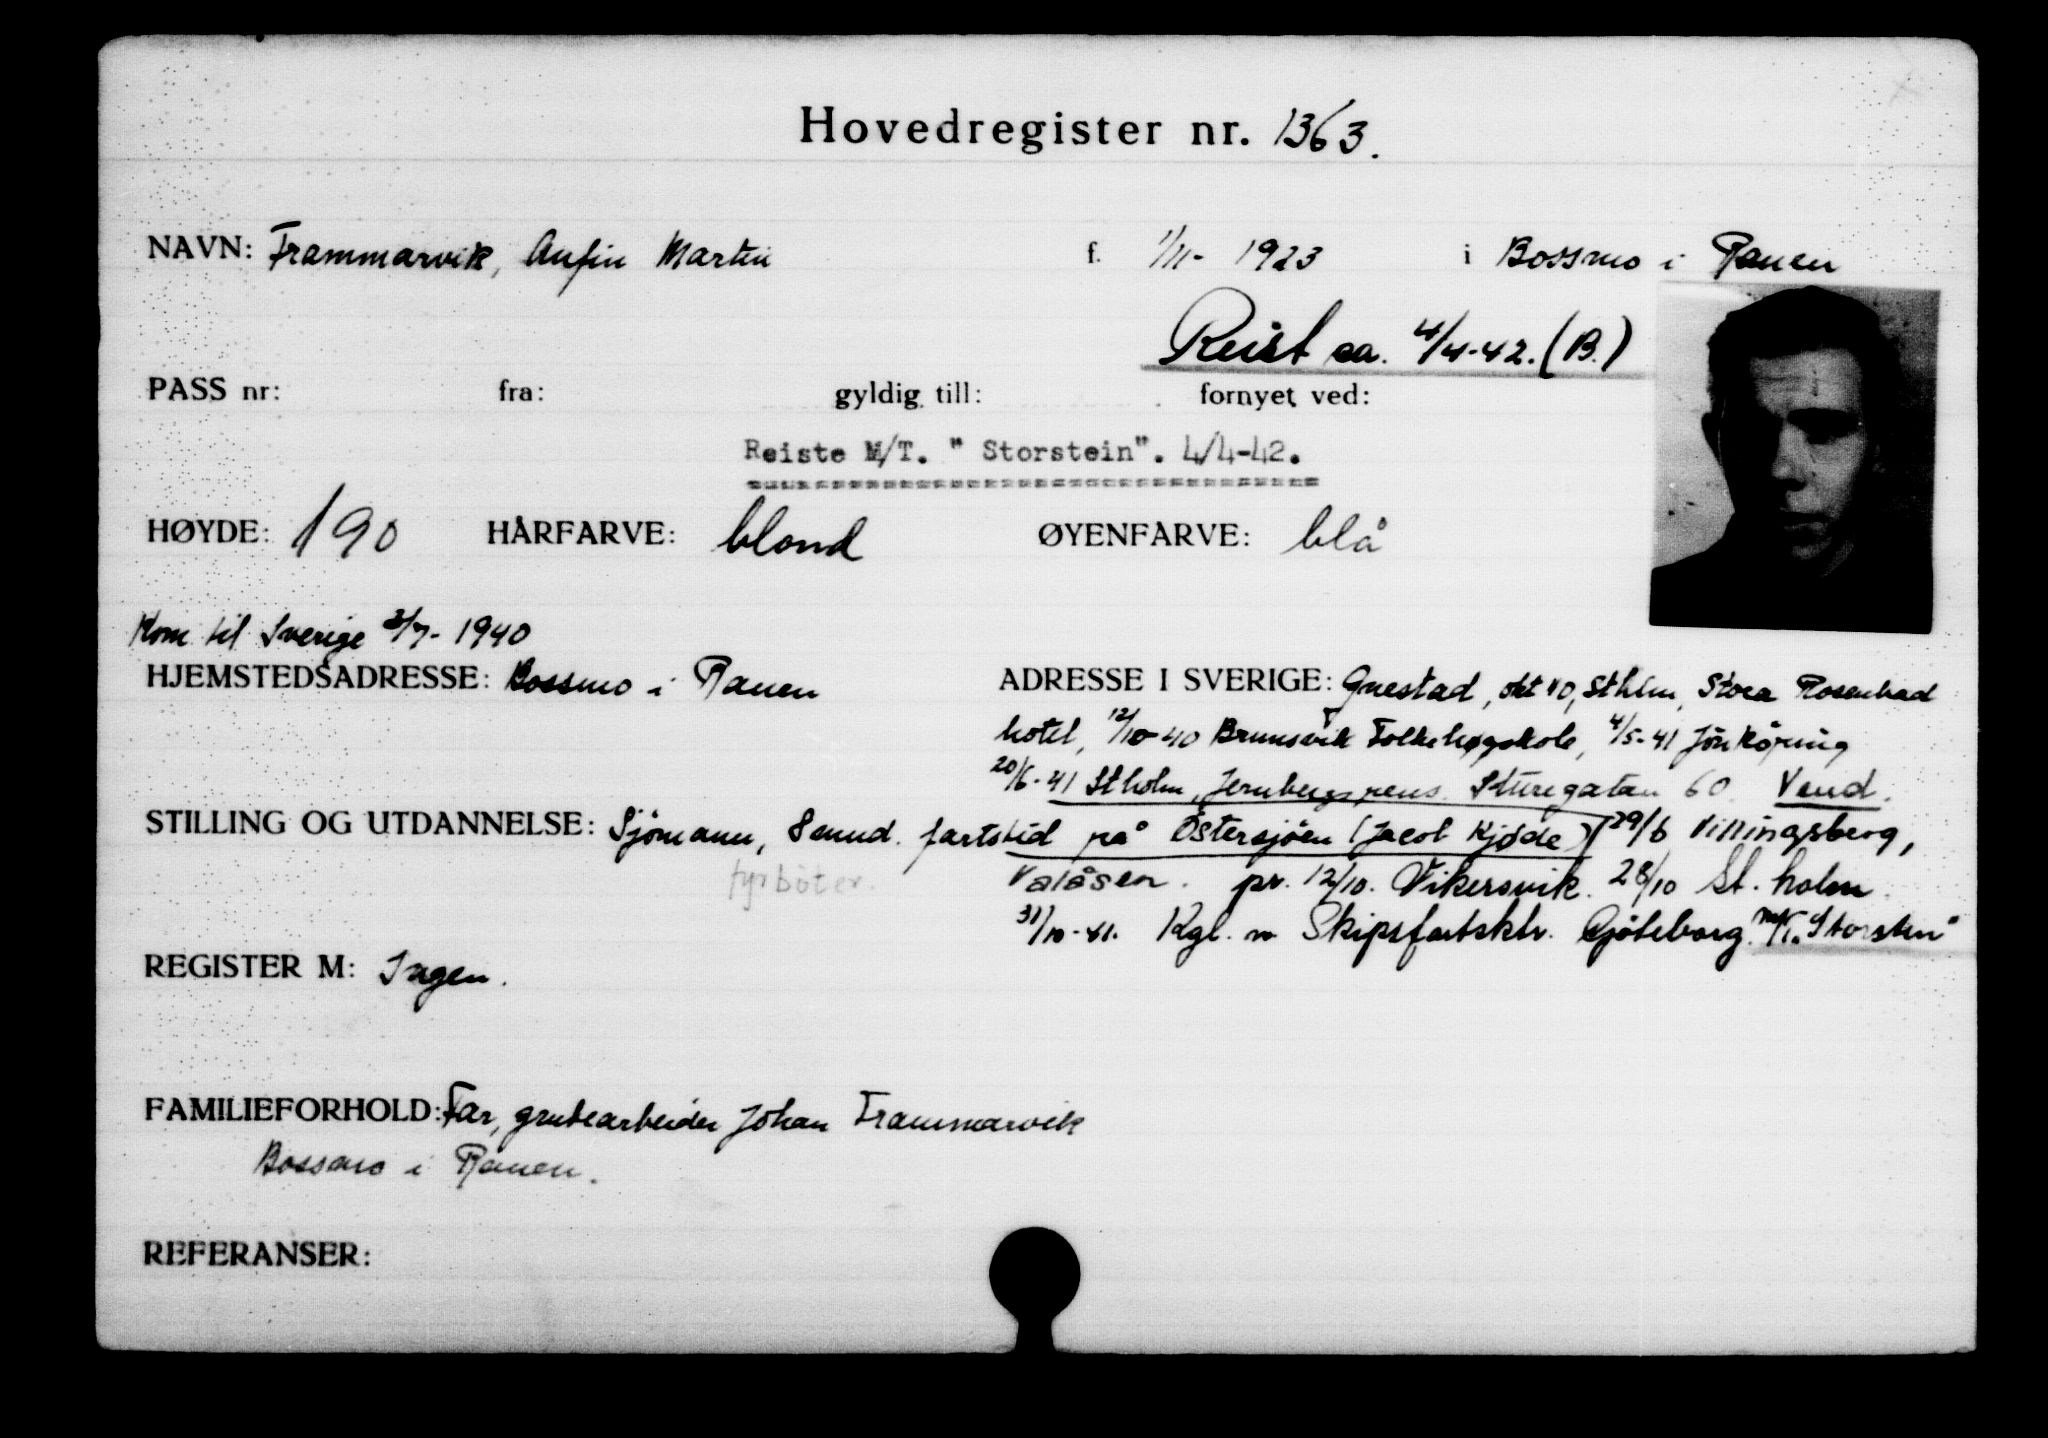 Hovedregister nr. 1363.
NAVN: Frammarvik, Anfin Martin f. 1/11- 1923 i Bossmo i Ranen
Reist ca. 4/4-42. (B.)
PASS nr: fra: gyldig till: fornyet ved:
Reiste M/T. " Storstein". 4/4-42.
HØYDE: 190 HÅRFARVE: blond ØYENFARVE: blå
Kom til Sverige 2/7- 1940
HJEMSTEDSADRESSE: Bossmo i Ranen
ADRESSE I SVERIGE: Gnestad, okt 40, Sthlm, Stora Rosenbad
hotel, 12/10-40 Brunsvik Folkehøgskole, 4/5-41 Jönköping
20/6-41 Stholm, Jernbergs pens. Sturegatan 60. Vend.
STILLING OG UTDANNELSE: Sjömann, 8 mnd. fartstid på Östersjöen (Jacob Kjøde)
fyrböter.
29/6 Villingsberg,
Valåsen. pr. 12/10. Vikersvik 28/10 St. holm
31/10-41. Kgl. n Skipsfartsktr. Gjöteborg. M/T. "Storsten"
REGISTER M: Ingen.
FAMILIEFORHOLD: Far, grubearbeider Johan Frammarvik
Bossmo i Ranen.
REFERANSER: